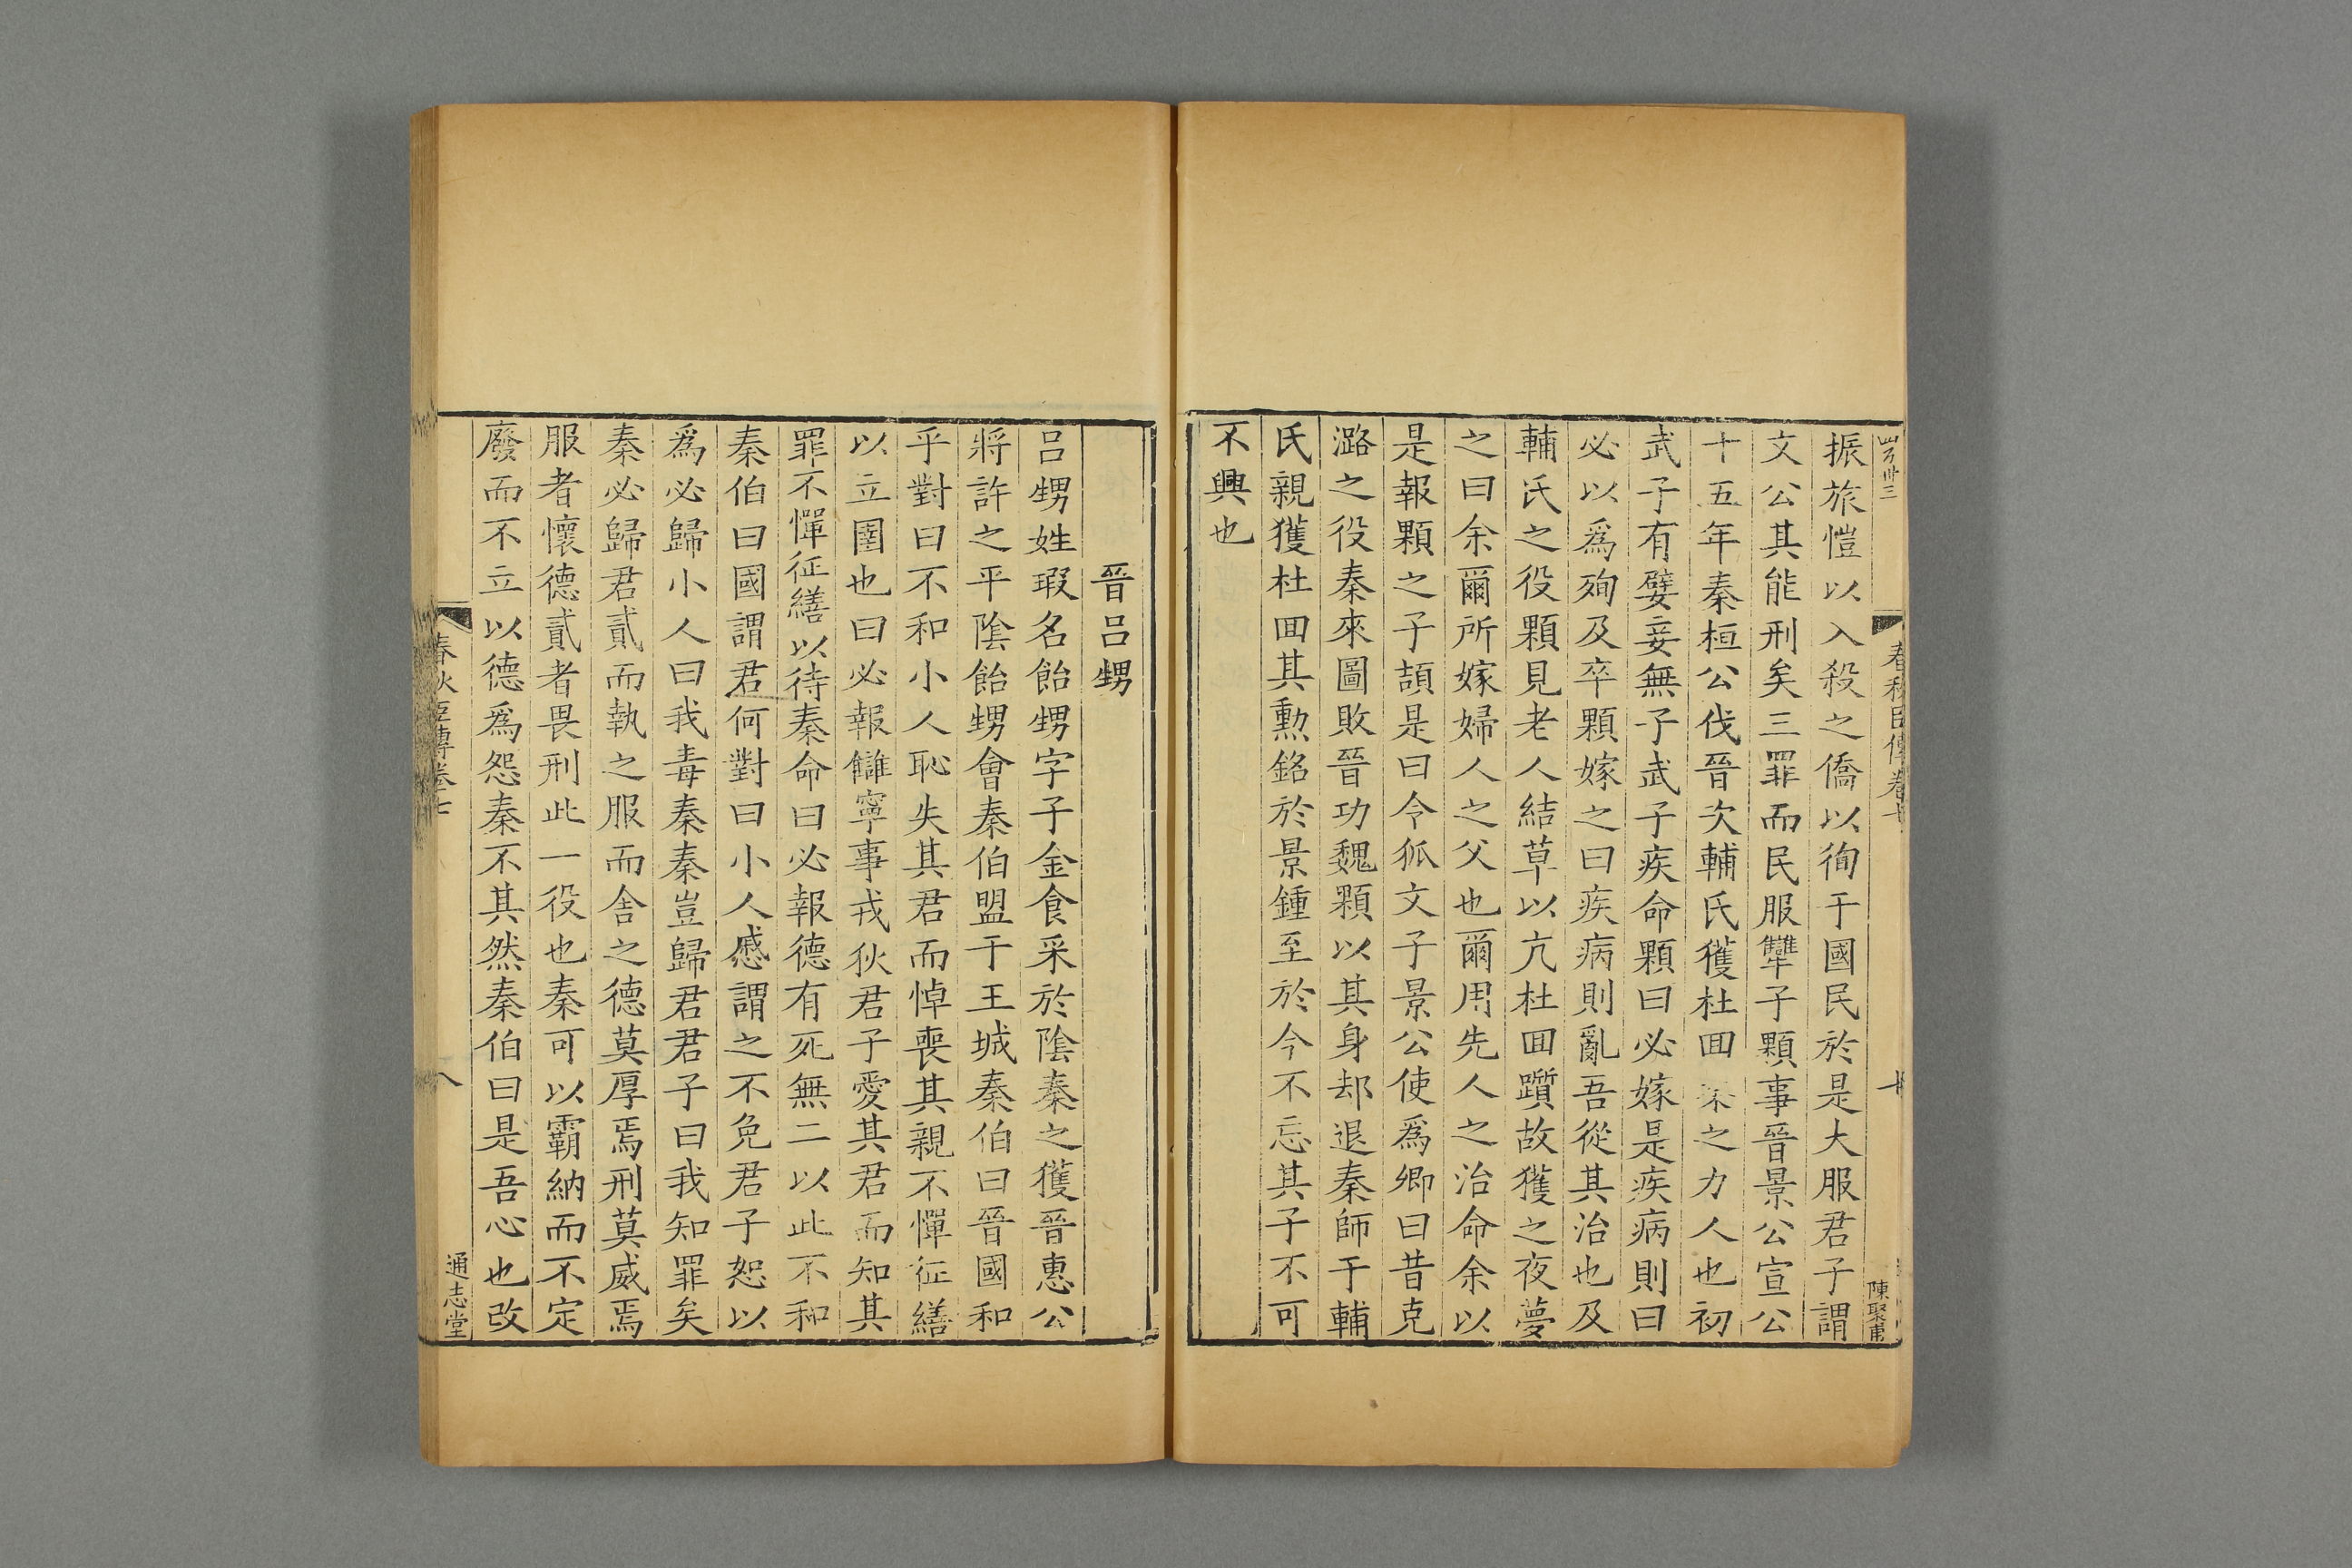 春秋臣傳卷七
陳聚甫
振旅愷以入殺之僑以徇于國民於是大服君子謂
文公其能刑矣三罪而民服犨子顆事晉景公宣公
十五年秦桓公伐晉次輔氏獲杜回秦之力人也初
武子有嬖妾無子武子疾命顆曰必嫁是疾病則曰
必以爲殉及卒顆嫁之曰疾病則亂吾從其治也及
輔氏之役顆見老人結草以亢杜回躓故獲之夜夢
之曰余爾所嫁婦人之父也爾用先人之治命余以
是報顆之子頡是曰令狐文子景公使爲卿曰昔克
潞之役秦來圖敗晉功魏顆以其身却退秦師于輔
氏親獲杜回其勲銘於景鍾至於今不忘其子不可
不興也
晉呂甥
呂甥姓瑕名飴甥字子金食采於陰秦之獲晉惠公
將許之平陰飴甥會秦伯盟于王城秦伯曰晉國和
乎對曰不和小人恥失其君而悼喪其親不憚征繕
以立圉也曰必報讎寧事戎狄君子愛其君而知其
罪不憚征繕以待秦命曰必報德有死無二以此不和
秦伯曰國謂君何對曰小人慼謂之不免君子恕以
爲必歸小人曰我毒秦秦豈歸君君子曰我知罪矣
秦必歸君貳而執之服而舍之德莫厚焉刑莫威焉
服者懷德貳者畏刑此一役也秦可以霸納而不定
廢而不立以德爲怨秦不其然秦伯曰是吾心也改
春秋臣傳卷七
八
通志堂